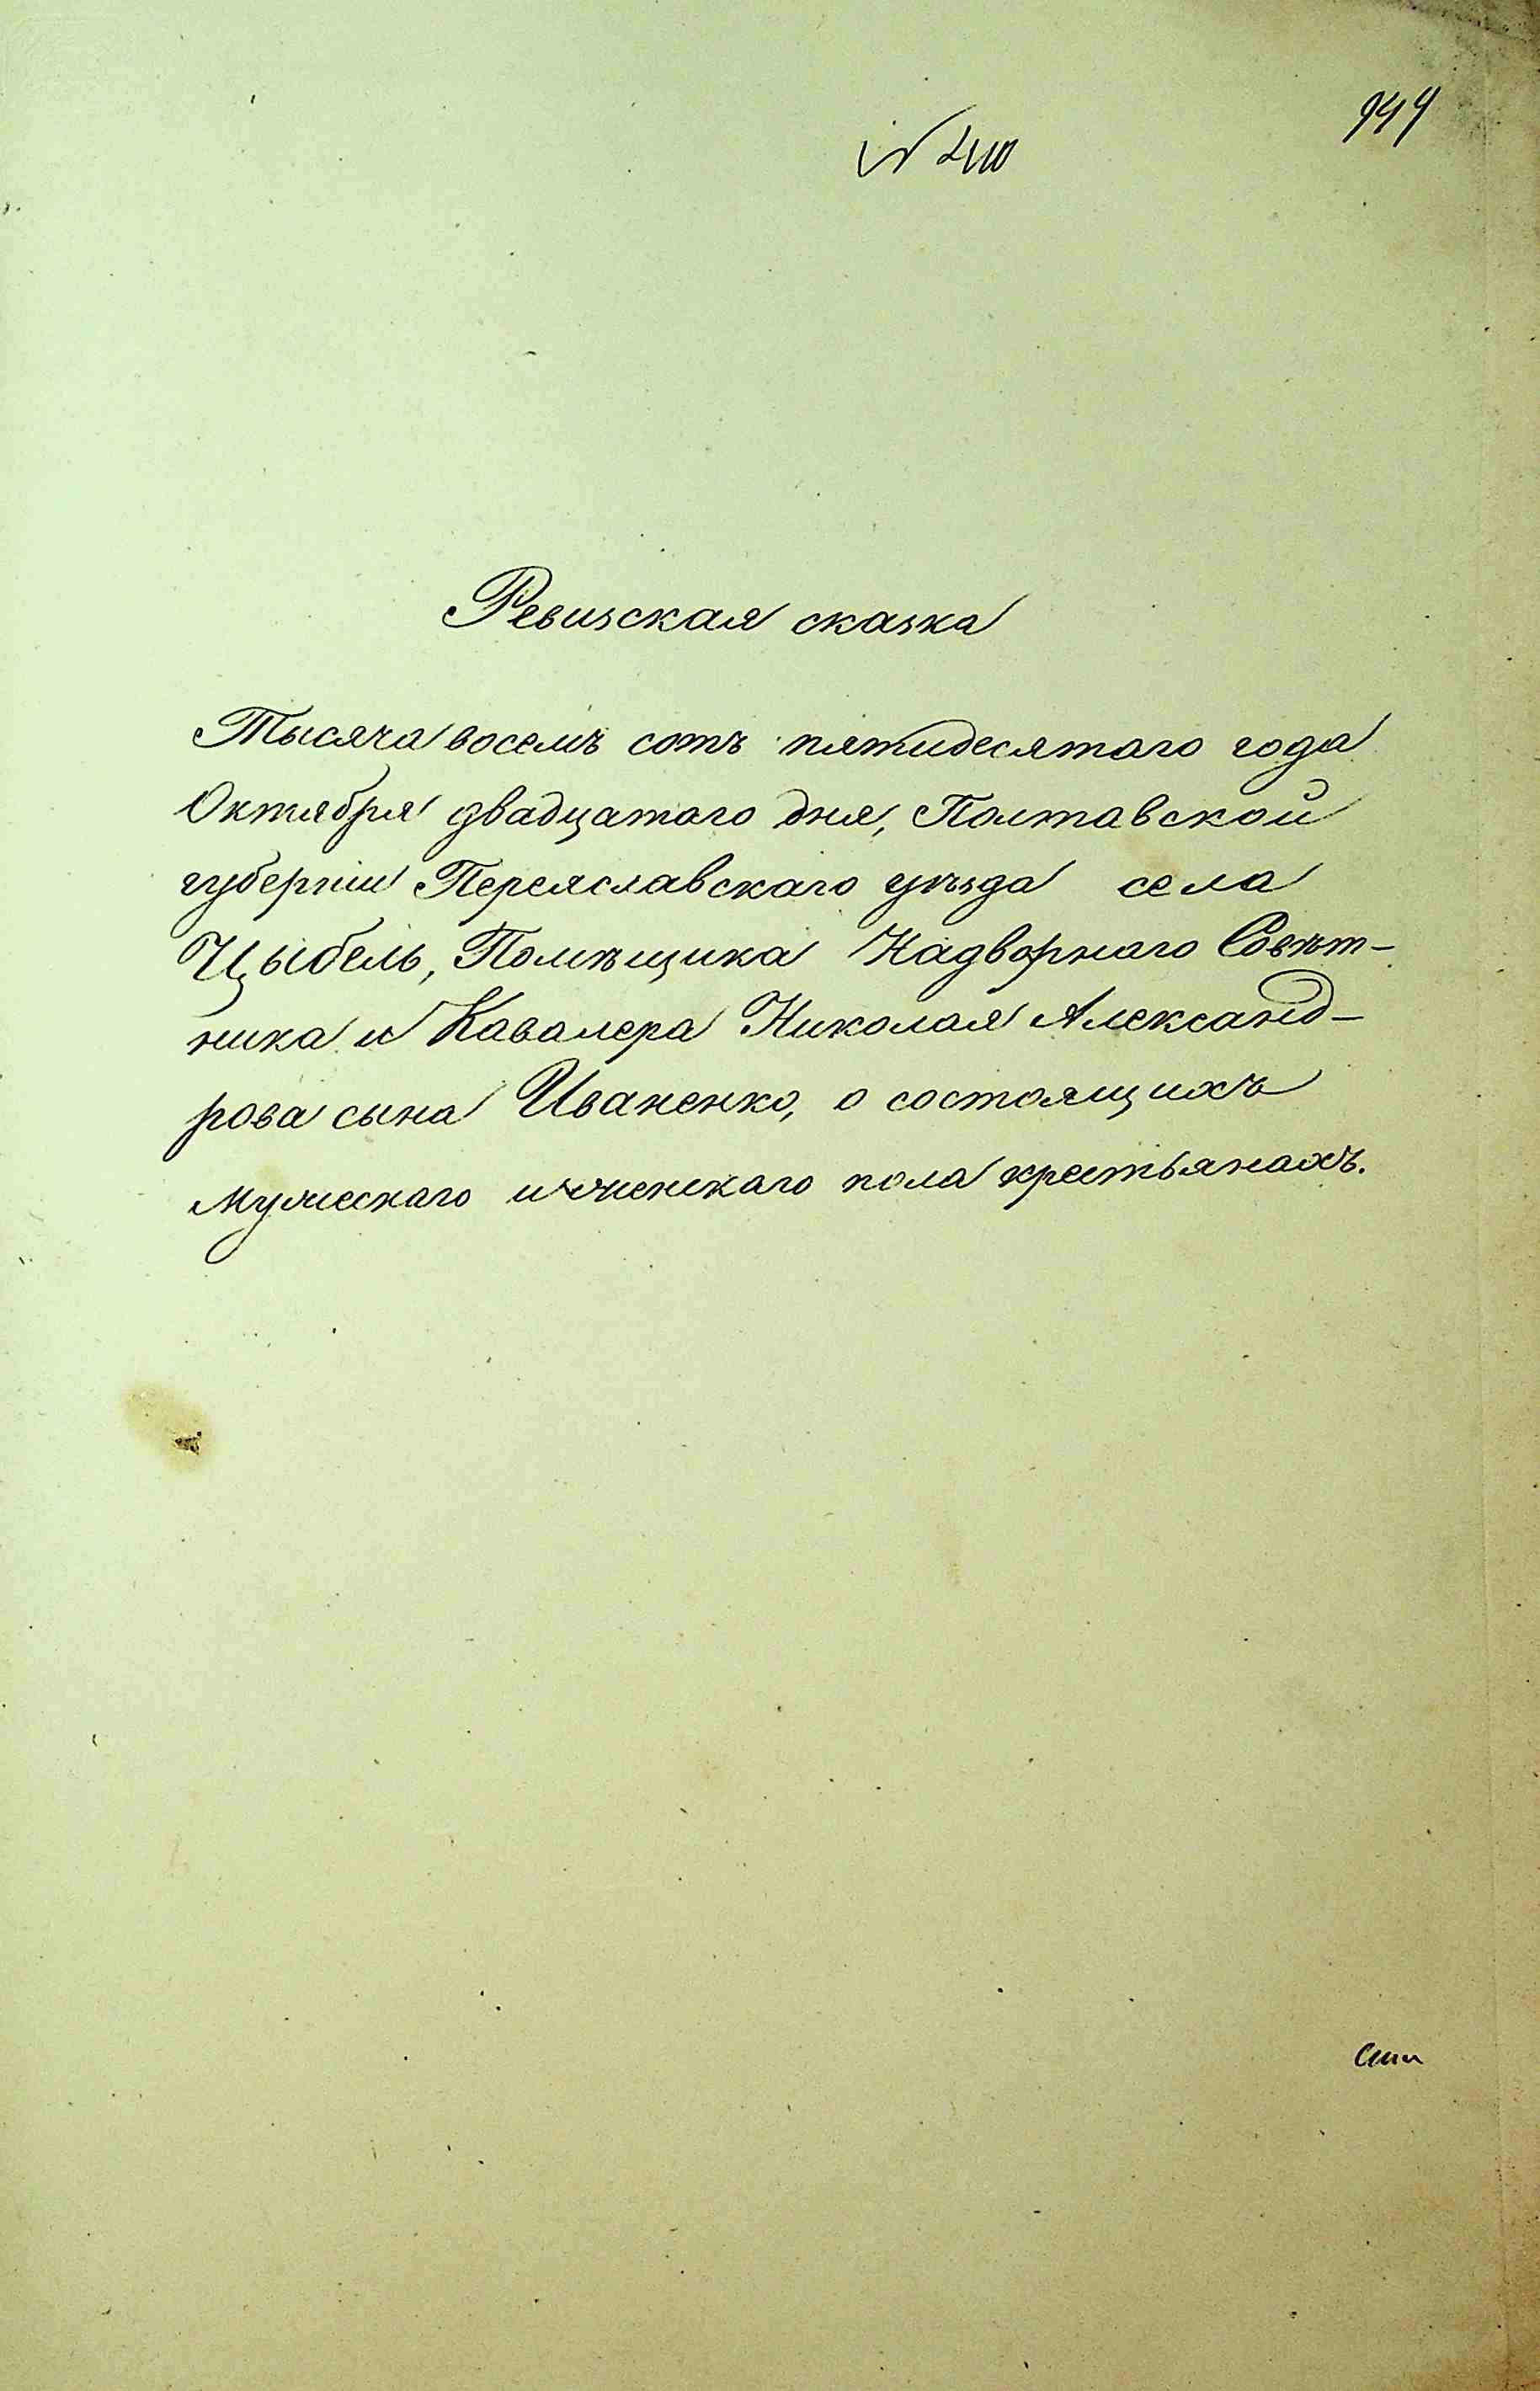 944
Ревизская сказка
Тысяча восемъ сотъ пятидесятаго года
Октября двадцатаго дня, Полтавской
губернiи Переяславскаго уѣзда села
Цыбель, Помѣщика Надворнаго Совѣт-
ника и Кавалера Николая Александ-
рова сына Иваненко, о состоящихъ
мужескаго и женскаго пола крестьянахъ.